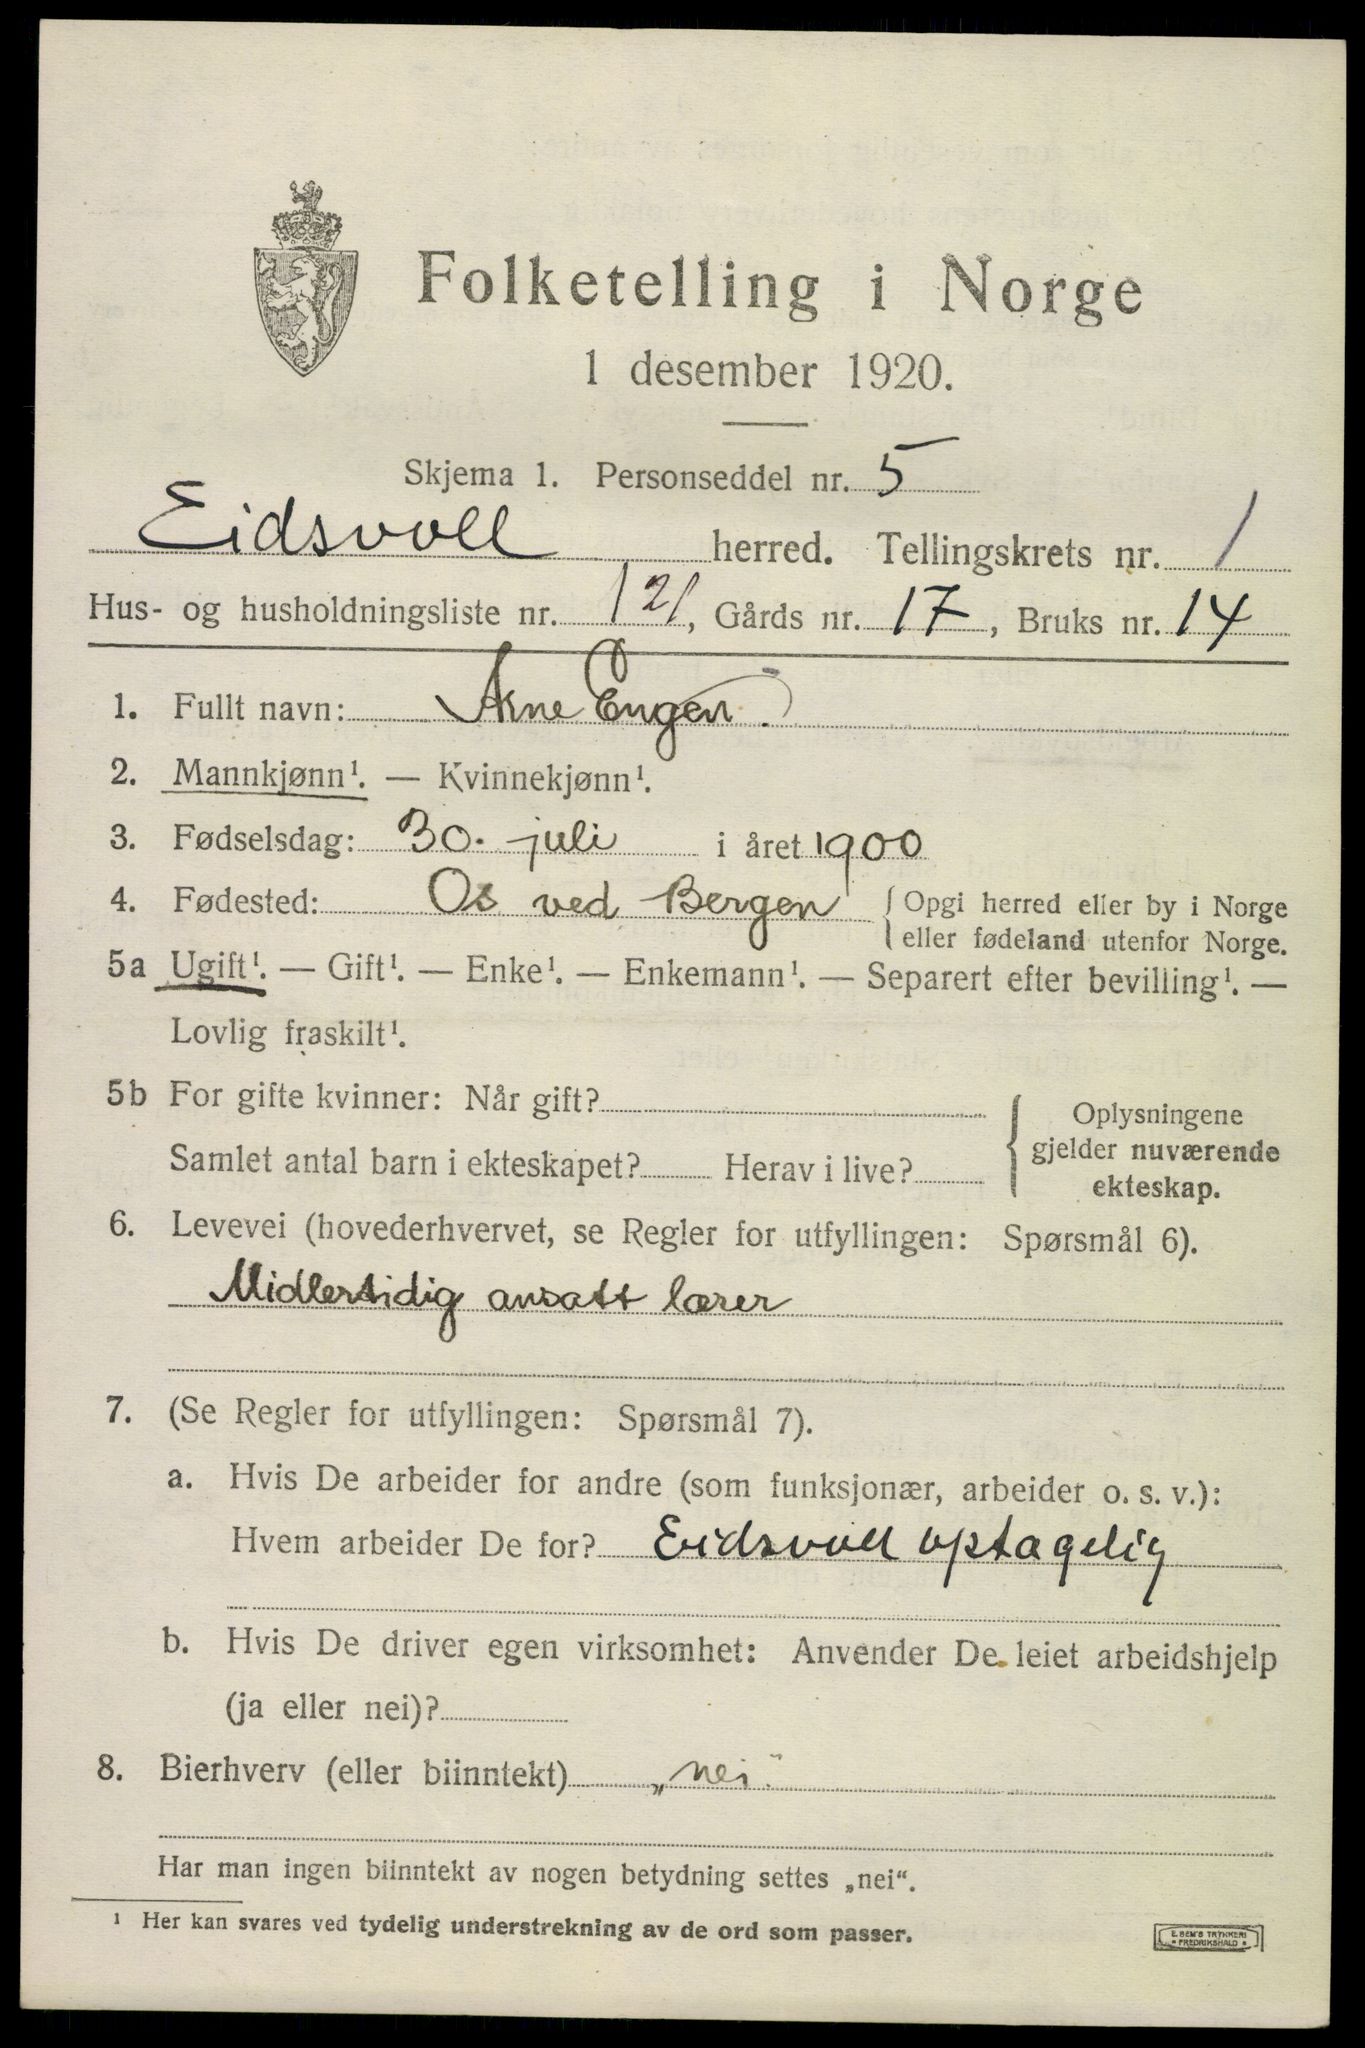 Folketelling i Norge
1 desember 1920.
Skjema 1. Personseddel nr. 5
Eidsvoll herred. Tellingskrets nr. 1
Hus- og husholdningsliste nr. 121, Gårds nr. 17, Bruks nr. 14
1. Fullt navn: Arne Engen.
2. Mannkjønn¹. — Kvinnekjønn¹.
3. Fødselsdag: 30. juli i året 1900
4. Fødested: Os ved Bergen { Opgi herred eller by i Norge
eller fødeland utenfor Norge.
5a Ugift¹. — Gift¹. — Enke¹. — Enkemann¹. — Separert efter bevilling¹. —
Lovlig fraskilt¹.
5b For gifte kvinner: Når gift?
Samlet antal barn i ekteskapet? Herav i live?
Oplysningene
gjelder nuværende
ekteskap.
6. Levevei (hovederhvervet, se Regler for utfyllingen: Spørsmål 6).
Midlertidig ansatt lærer
7. (Se Regler for utfyllingen: Spørsmål 7).
a. Hvis De arbeider for andre (som funksjonær, arbeider o. s. v.):
Hvem arbeider De for? Eidsvoll optagelig
b. Hvis De driver egen virksomhet: Anvender De leiet arbeidshjelp
(ja eller nei)?
8. Bierhverv (eller biinntekt) „nei"
Har man ingen biinntekt av nogen betydning settes „nei“.
¹ Her kan svares ved tydelig understrekning av de ord som passer.
E. SEM'S TRYKKERI
* FREDRIKSHALD *